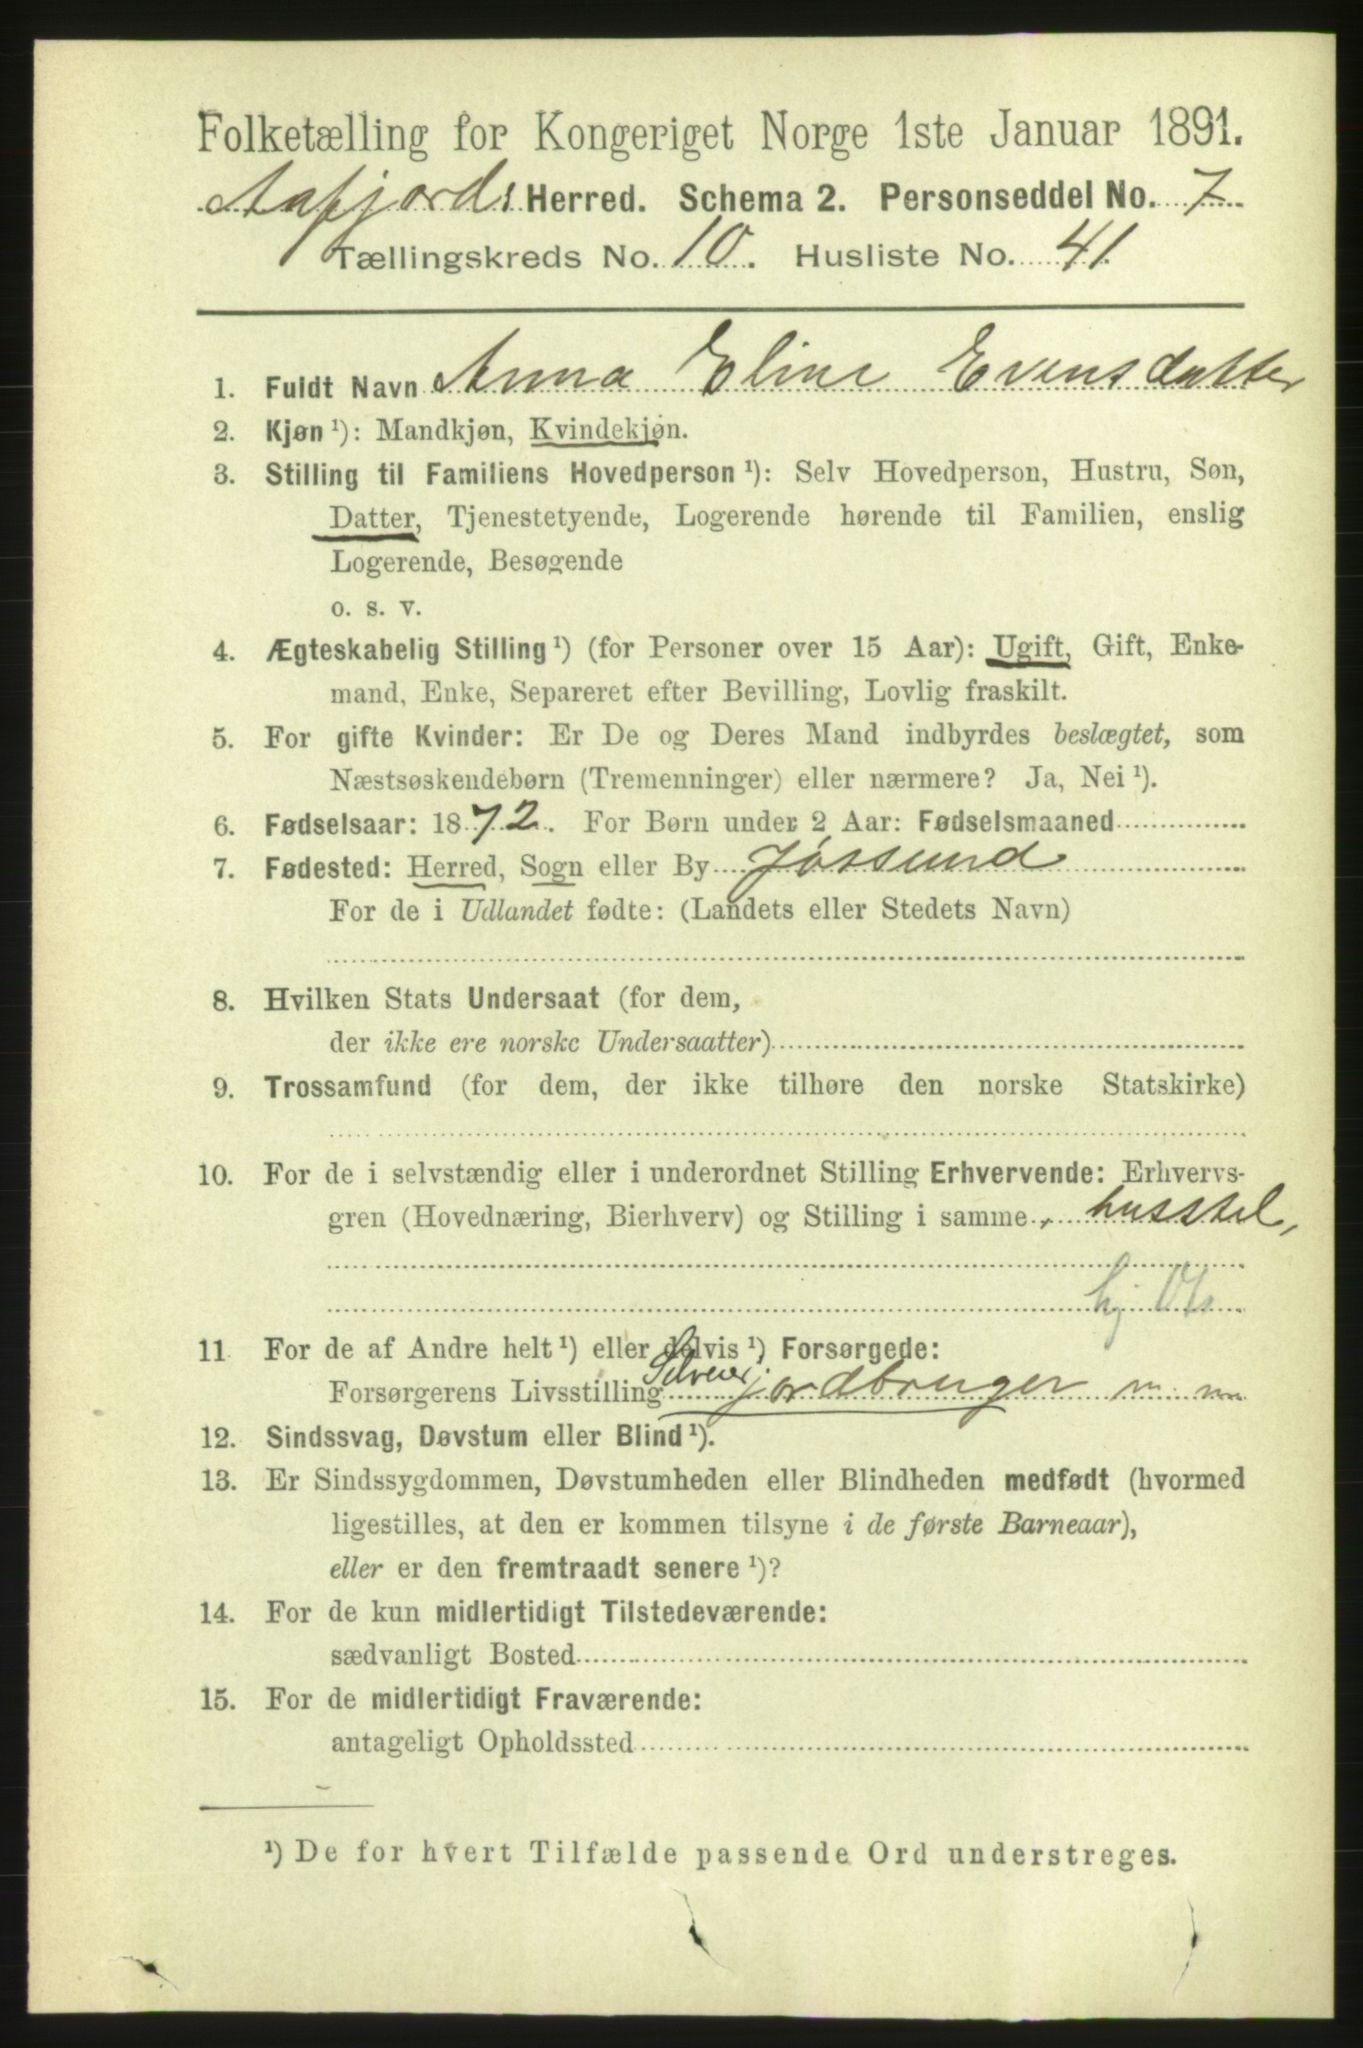 Folketælling for Kongeriget Norge 1ste Januar 1891.
Aafjords Herred. Schema 2. Personseddel No. 7
Tællingskreds No. 10. Husliste No. 41
1. Fuldt Navn Anna Eline Evensdatter
2. Kjøn ¹): Mandkjøn, Kvindekjøn.
3. Stilling til Familiens Hovedperson ¹): Selv Hovedperson, Hustru, Søn,
Datter, Tjenestetyende, Logerende hørende til Familien, enslig
Logerende, Besøgende
o. s. v.
4. Ægteskabelig Stilling ¹) (for Personer over 15 Aar): Ugift, Gift, Enke-
mand, Enke, Separeret efter Bevilling, Lovlig fraskilt.
5. For gifte Kvinder: Er De og Deres Mand indbyrdes beslægtet, som
Næstsøskendebørn (Tremenninger) eller nærmere? Ja, Nei ¹).
6. Fødselsaar: 1872. For Børn under 2 Aar: Fødselsmaaned
7. Fødested: Herred, Sogn eller By Jøssund
For de i Udlandet fødte: (Landets eller Stedets Navn)
8. Hvilken Stats Undersaat (for dem,
der ikke ere norske Undersaatter)
9. Trossamfund (for dem, der ikke tilhøre den norske Statskirke)
10. For de i selvstændig eller i underordnet Stilling Erhvervende: Erhvervs-
gren (Hovednæring, Bierhverv) og Stilling i samme husstel,
hj.
11 For de af Andre helt ¹) eller delvis ¹) Forsørgede:
Forsørgerens Livsstilling Selveier jordbruger m. m.
12. Sindssvag, Døvstum eller Blind ¹).
13. Er Sindssygdommen, Døvstumheden eller Blindheden medfødt (hvormed
ligestilles, at den er kommen tilsyne i de første Barneaar),
eller er den fremtraadt senere ¹)?
14. For de kun midlertidigt Tilstedeværende:
sædvanligt Bosted
15. For de midlertidigt Fraværende:
antageligt Opholdssted
¹) De for hvert Tilfælde passende Ord understreges.